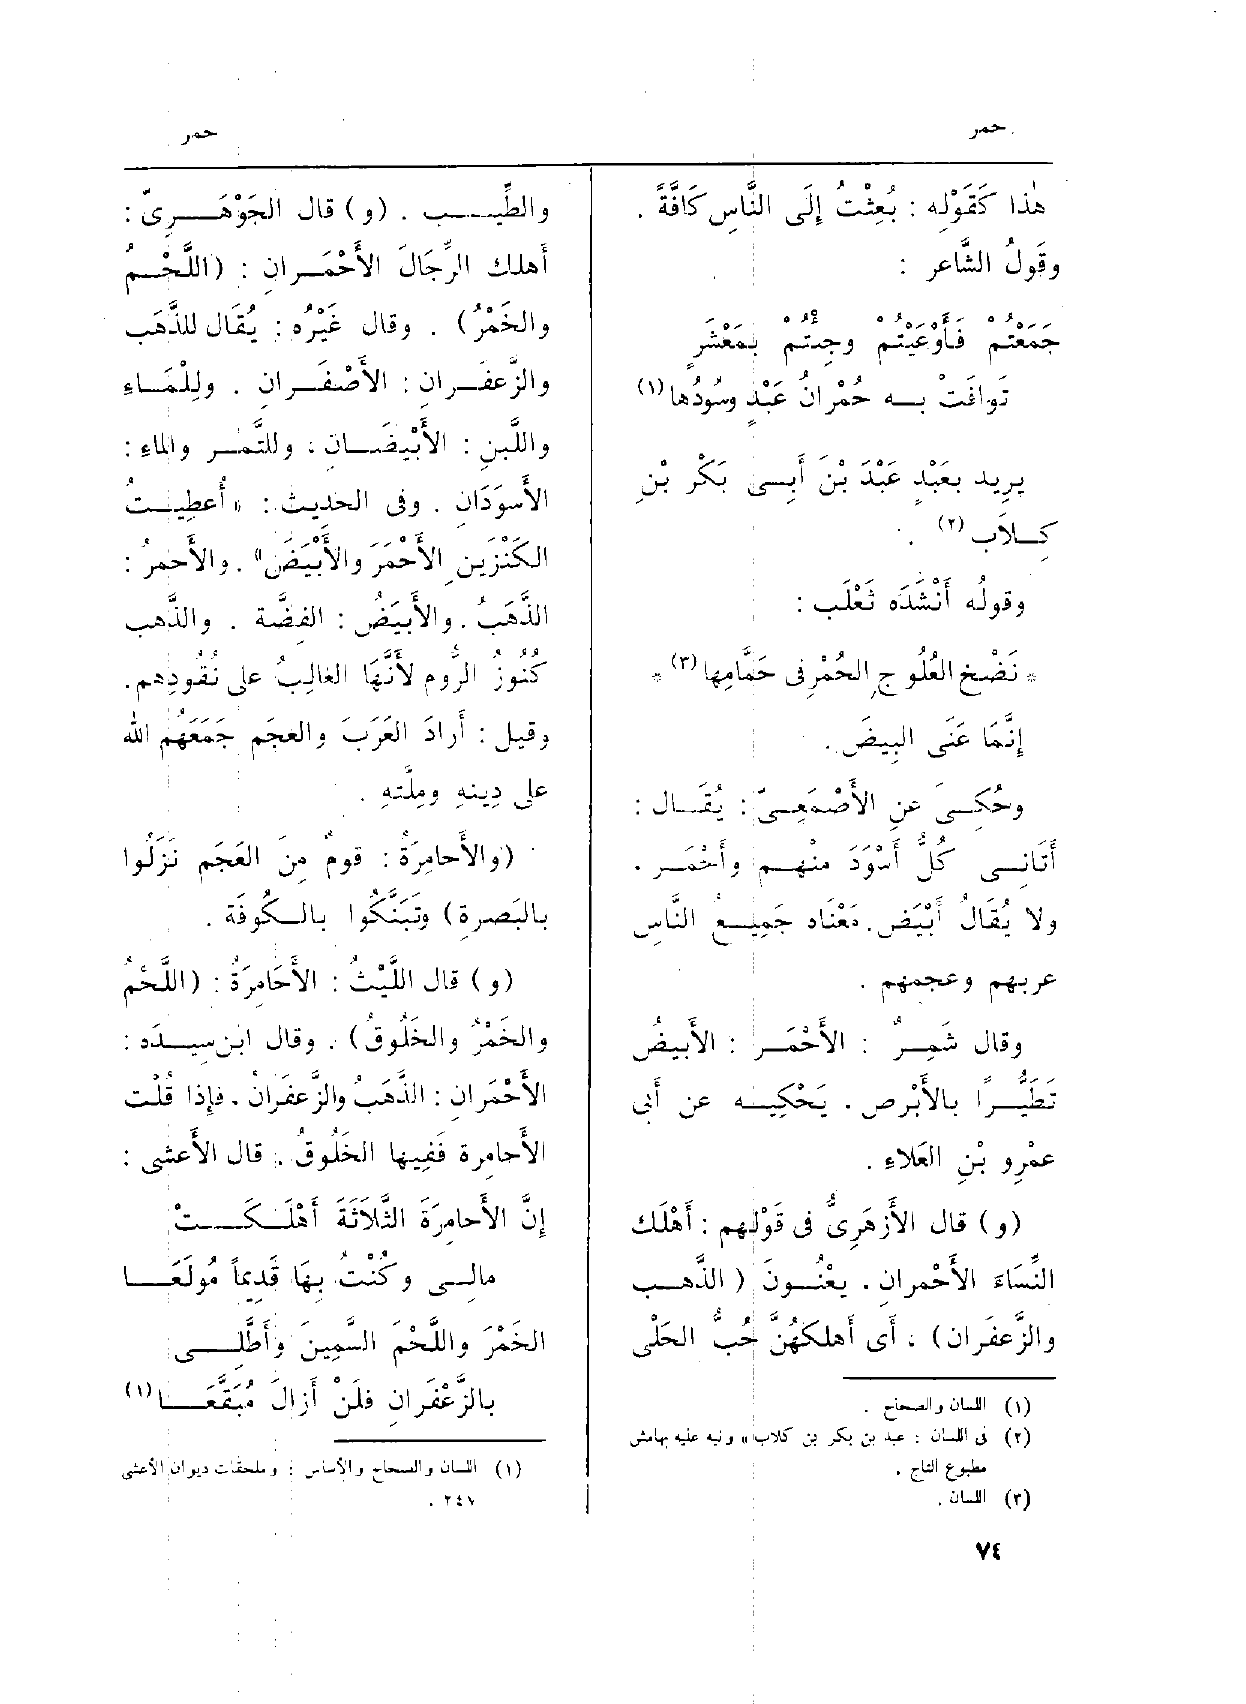 حمر
حمر
هٰذا كَقَوْلِه : بُعِثْتُ إِلَى النَّاسِ كَافَّةً .
وقَولُ الشَّاعر :
جَمَعْتُمْ فَأَوْعَيْتُمْ وجِئْتُمْ بِمَعْشَرٍ
تَوَافَتْ بِه حُمْرانُ عَبْدٍ وسُودُها (١)
يريد بعَبْدٍ عَبْدَ بْنَ أَبِى بَكْرْ بْنِ
كِلاَب (٢) .
وقولُه أَنْشَدَه ثَعْلَب :
* نَضْخ العُلُوجِ الحُمْرِ فى حَمَّامِها (٣) *
إِنَّمَا عَنَى البِيضَ .
وحُكِىَ عنِ الأَصْمَعِىّ : يُقَال :
أَتَانِى كُلُّ أَسْوَدَ منْهم وأَحْمَر .
ولا يُقَالُ أَبْيَض . مَعْنَاه جَمِيعُ النَّاسِ
عربهم وعجمهم .
وقال شَمِرٌ : الأَحْمَر : الأَبيضُ
تَطَيُّرًا بالأَبْرص . يَحْكِيه عن أَبى
عمْرِو بْنِ العَلاءِ .
(و) قال الأَزهَرِىُّ فى قَوْلِهم : أَهْلَك
النِّسَاءَ الأَحْمرانِ . يعْنُونَ (الذَّهب
والزَّعفَران) ، أَى أَهلكَهُنَّ حُبُّ الحَلْى
(١) اللسان والصحاح .
(٢) فى اللسان : عبد بن بكر بن كلاب » ونبه عليه بهامش
مطبوع التاج .
(٣) اللسان .
والطِّيب . (و) قال الجَوْهَرِىّ :
أهلك الرِّجَالَ الأَحْمَرانِ : (اللَّحْمُ
والخَمْرُ) . وقال غَيْرُه : يُقَال للذَّهَب
والزَّعفَران : الأَصْفَرانِ . ولِلْمَاءِ
واللَّبنِ : الأَبْيَضَانِ ، وللتَّمْر والماءِ :
الأَسودَانِ . وفى الحديث : « أُعطِيتُ
الكَنْزَينِ الأَحْمَرَ والأَبْيَضَ» . والأَحمرُ :
الذَّهَبُ . والأَبيَضُ : الفِضَّة . والذَّهب
كُنُوزُ الرُّومِ لأَنَّهَا الغالِبُ على نُقُودِهم .
وقيل : أَرادَ العَرَبَ والعجَم جَمَعَهُم الله
على دِينهِ ومِلَّتهِ .
(والأَحامِرَةُ : قومٌ مِنَ العَجَم نَزَلُوا
بالبَصرةِ) وتَبَنَّكُوا بالكُوفَة .
(و) قال اللَّيْثُ : الأَحَامِرَةُ : (اللَّحْمُ
والخَمْرُ والخَلُوقُ) . وقال ابن سِيدَه :
الأَحْمَرانِ : الذَّهَبُ والزَّعفَرانُ . فإِذا قُلْت
الأَحامِرة فَفِيها الخَلُوقُ . قال الأَعشى :
إِنَّ الأَحامِرَةَ الثَّلاَثَةَ أَهْلَكَتْ
مالِى وكُنْتُ بِهَا قَدِيماً مُولَعَا
الخَمْرَ واللَّحْمَ السَّمِينَ وأَطَّلِى
بالزَّعْفَرانِ فلَنْ أَزالَ مُبَقَّعَا (١)
(١) اللسان والصحاح والأساس : وملحقات ديوان الأعشى
٢٤٧ .
٧٤